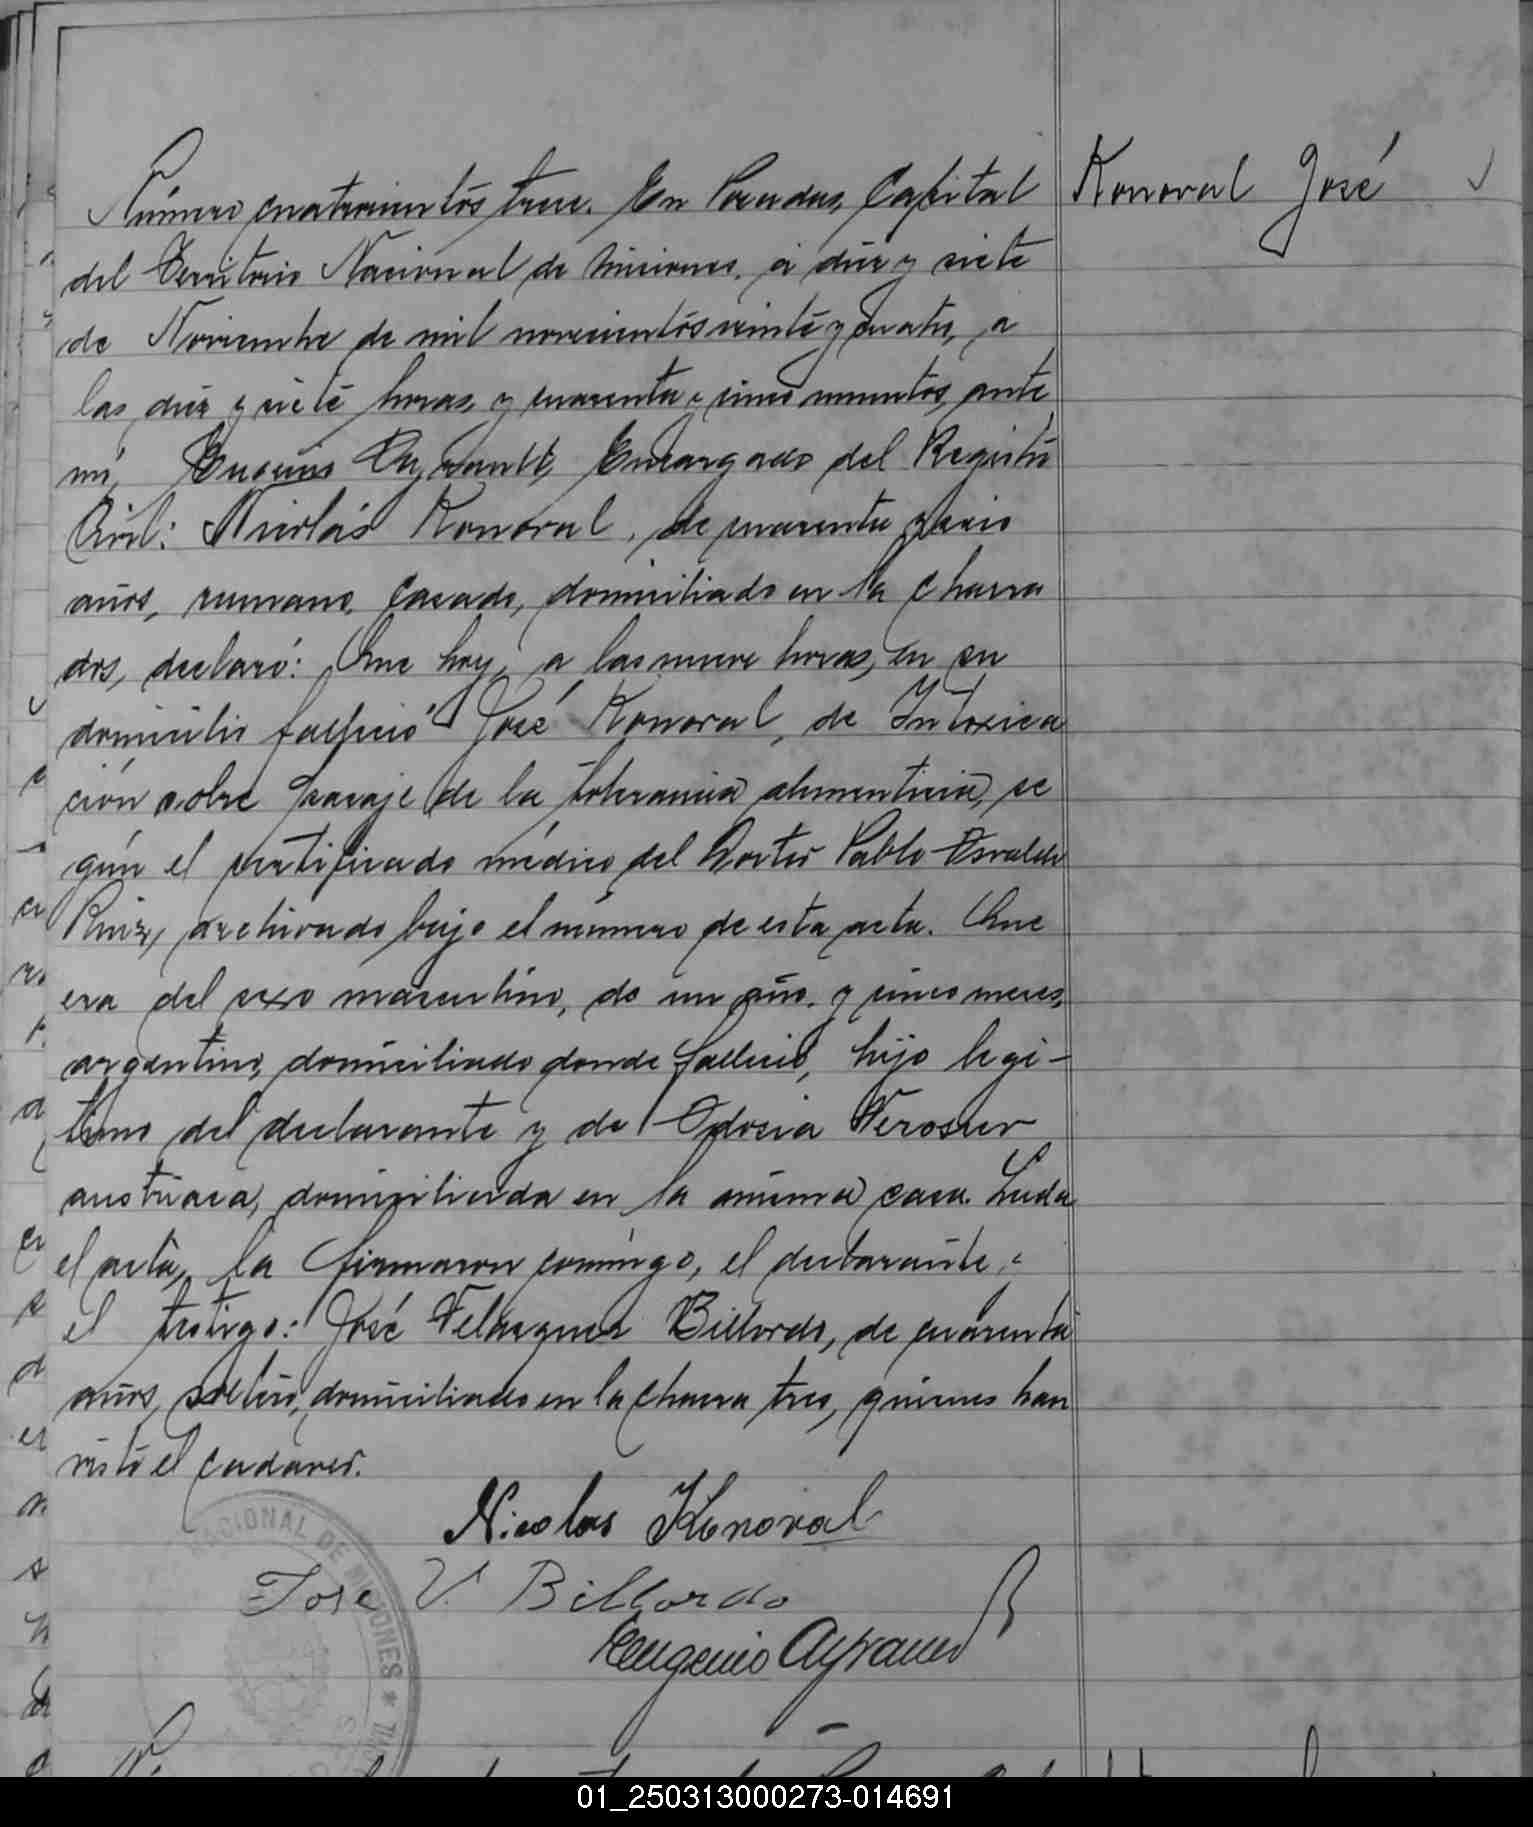 Konoval José
Número cuatrocientos trece. En Posadas, Capital
del Territorio Nacional de Misiones, á diez y siete
de Noviembre de mil novecientos veinte y cuatro, a
las diez y siete horas, y cuarenta y cinco minutos, ante
mí, Eugenio Ayrault, Encargado del Registro
Civil: Nicolás Konoval, de cuarenta y seis
años, rumano, casado, domiciliado en la chacra
dos, declaró: Que hoy, a las nueve horas, en su
domicilio falleció José Konoval, de Intoxica
ción sobre pasaje de la tolerancia alimenticia, se
gún el certificado médico del Doctor Pablo Osvaldo
Ruiz, archivado bajo el número de esta acta. Que
era del sexo masculino, de un año, y cinco meses,
argentino, domiciliado donde falleció, hijo legí-
timo del declarante y de Odocia
austriaca, domiciliada en la misma casa. Leida
el acta, la firmaron conmigo, el declarante, y
el testigo: José Velazquez Billordo, de cuarenta
años, soltero, domiciliado en la chacra tres, quienes han
visto el cadaver.
Nicolas Konoval
Jose V. Billordo
Eugenio Ayrault
NACIONAL DE MISIONES *
01_250313000273-014691